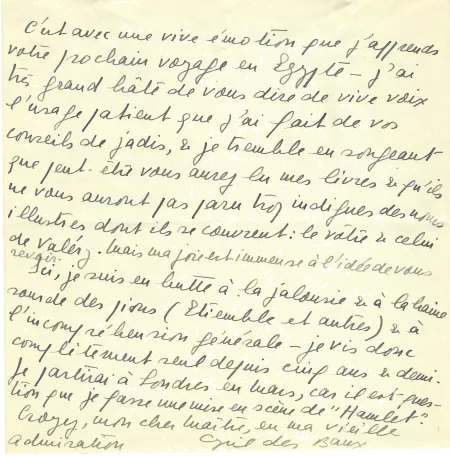 C'est avec une vive émotion que j'apprends
votre prochain voyage en Egypte – j'ai
très grand hâte de vous dire de vive voix
l'usage patient que j'ai fait de vos
conseils de jadis, & je tremble en songeant
que peut-être vous aurez lu mes livres & qu'ils
ne vous auront pas paru trop indignes des noms
illustres dont ils se couvrent: le vôtre & celui
de Valéry. Mais ma joie est immense à l'idée de vous
revoir.
Ici, je suis en butte à la jalousie & à la haine
sourde des pions (Etiemble et autres) & à
l'incompréhension générale – je vis donc
complètement seul depuis cinq ans & demi.
Je partirai à Londres en mars, car il est ques-
tion que je fasse une mise en scène de "Hamlet".
Croyez, mon cher Maître, en ma vieille
admiration Cyril des Baux